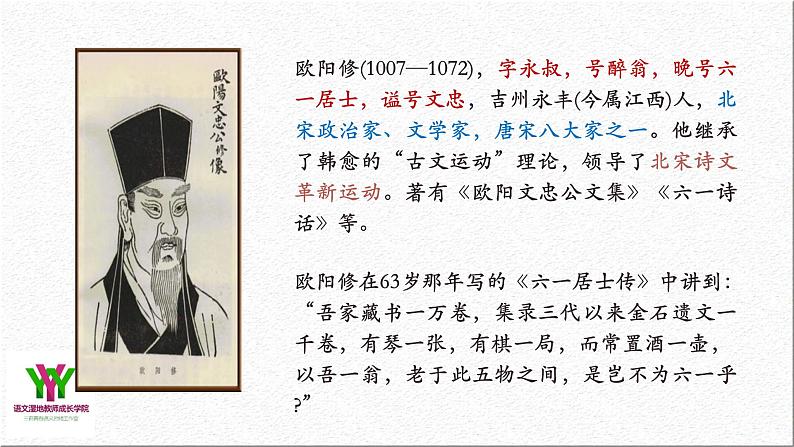 歐陽文忠公修像
欧阳修
欧阳修(1007—1072)，字永叔，号醉翁，晚号六
一居士，谥号文忠，吉州永丰(今属江西)人，北
宋政治家、文学家，唐宋八大家之一。他继承
了韩愈的“古文运动”理论，领导了北宋诗文
革新运动。著有《欧阳文忠公文集》《六一诗
话》等。
欧阳修在63岁那年写的《六一居士传》中讲到：
“吾家藏书一万卷，集录三代以来金石遗文一
千卷，有琴一张，有棋一局，而常置酒一壶，
以吾一翁，老于此五物之间，是岂不为六一乎
?”
语文湿地教师成长学院